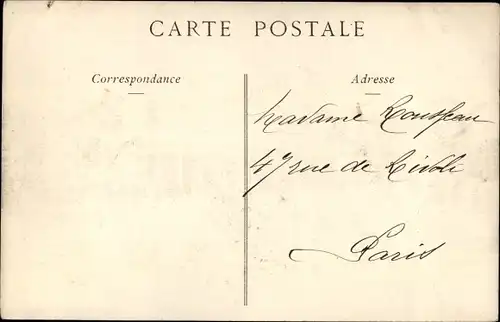 CARTE POSTALE
Correspondance
Adresse
Madame Rousseau
47 rue de Rivoli
Paris